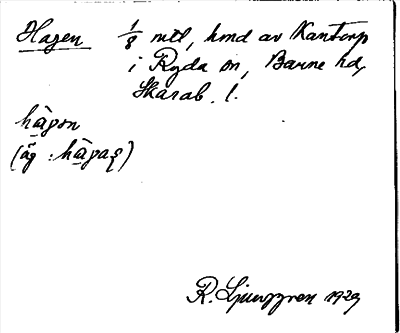 Hagen 1/8 mtl, hmd av Kantorp
i Ryda sn, Barne hd,
Skarab. l.
hàgɷn
(äg : hàgaș)
R. Ljunggren 1929